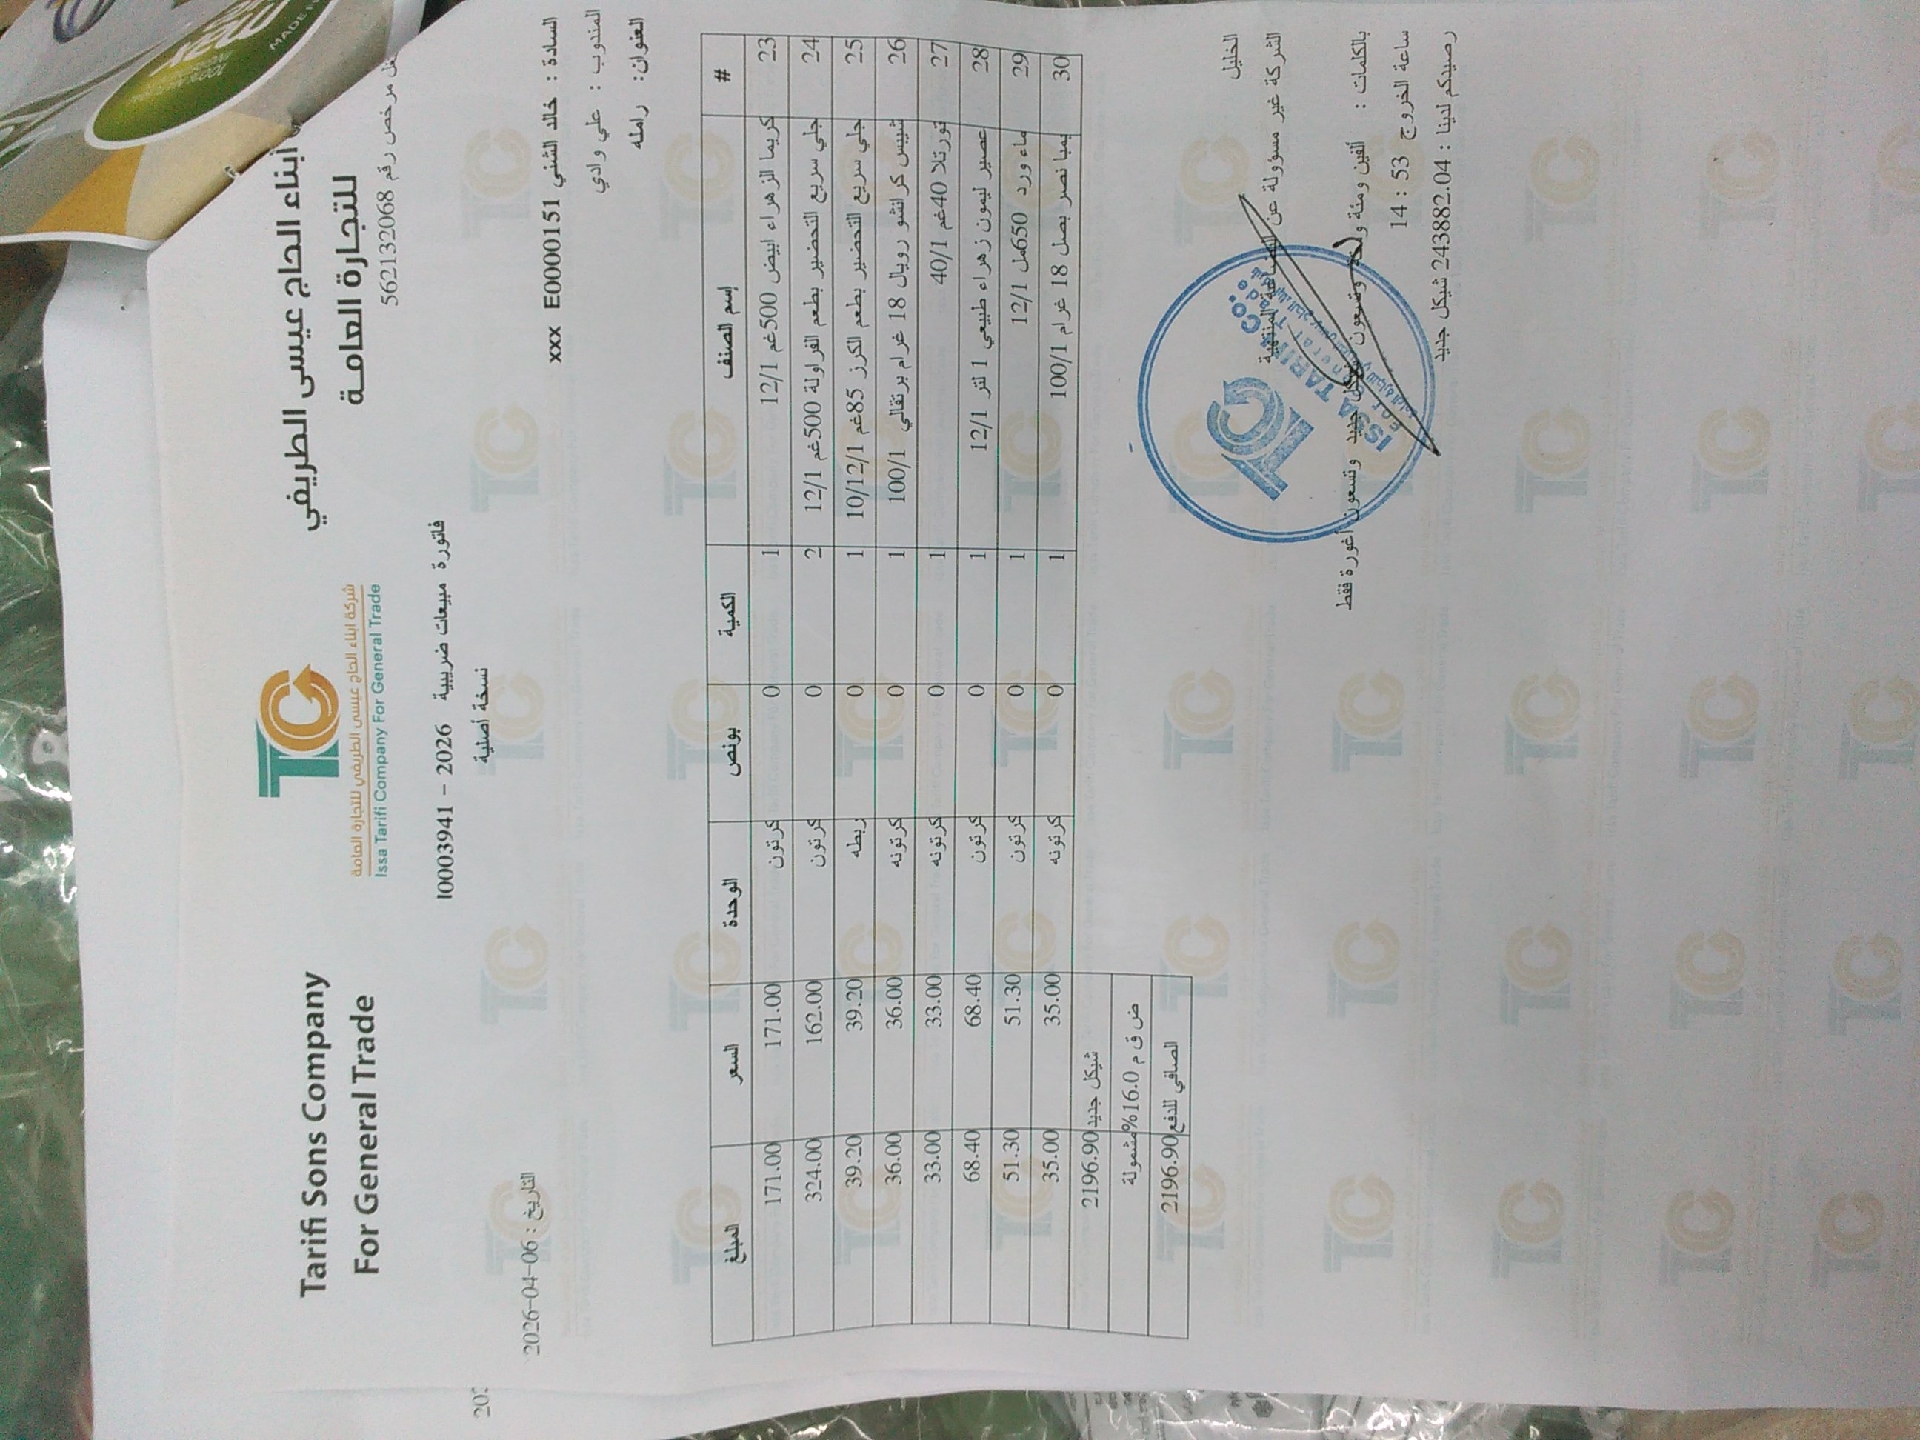 Tarifi Sons Company
For General Trade
شركة ابناء الحاج عيسى الطريفي للتجارة العامة
Issa Tarifi Company For General Trade
ابناء الحاج عيسى الطريفي
للتجارة العامة
مرخص رقم 562132068
فاتورة مبيعات ضريبية 2026 - I0003941
نسخة أصلية
التاريخ : 2026-04-06
السادة : خالد الشني E0000151 xxx
المندوب : علي وادي
العنوان: رامله
# إسم الصنف الكمية بونص الوحدة السعر المبلغ
23 كريما الزهراء ابيض 500غم 12/1 1 0 كرتون 171.00 171.00
24 جلي سريع التحضير بطعم الفراولة 500غم 12/1 2 0 كرتون 162.00 324.00
25 جلي سريع التحضير بطعم الكرز 85غم 10/12/1 1 0 ربطه 39.20 39.20
26 شيبس كرانشو رويال 18 غرام برتقالي 100/1 1 0 كرتونه 36.00 36.00
27 تورتلا 40غم 40/1 1 0 كرتونه 33.00 33.00
28 عصير ليمون زهراء طبيعي 1 لتر 12/1 1 0 كرتون 68.40 68.40
29 ماء ورد 650مل 12/1 1 0 كرتون 51.30 51.30
30 يمبا نصر بصل 18 غرام 100/1 1 0 كرتونه 35.00 35.00
شيكل جديد 2196.90
ض ق م 16.0% مشمولة
الصافي للدفع 2196.90
الخليل
الشركة غير مسؤولة عن البضاعة المنتهية
بالكلمات : ألفين ومئة وستة وتسعون شيكل جديد وتسعون أغورة فقط
ساعة الخروج 53 : 14
رصيدكم لدينا : 243882.04 شيكل جديد
TC
ISSA TARIFI CO.
For General Trade